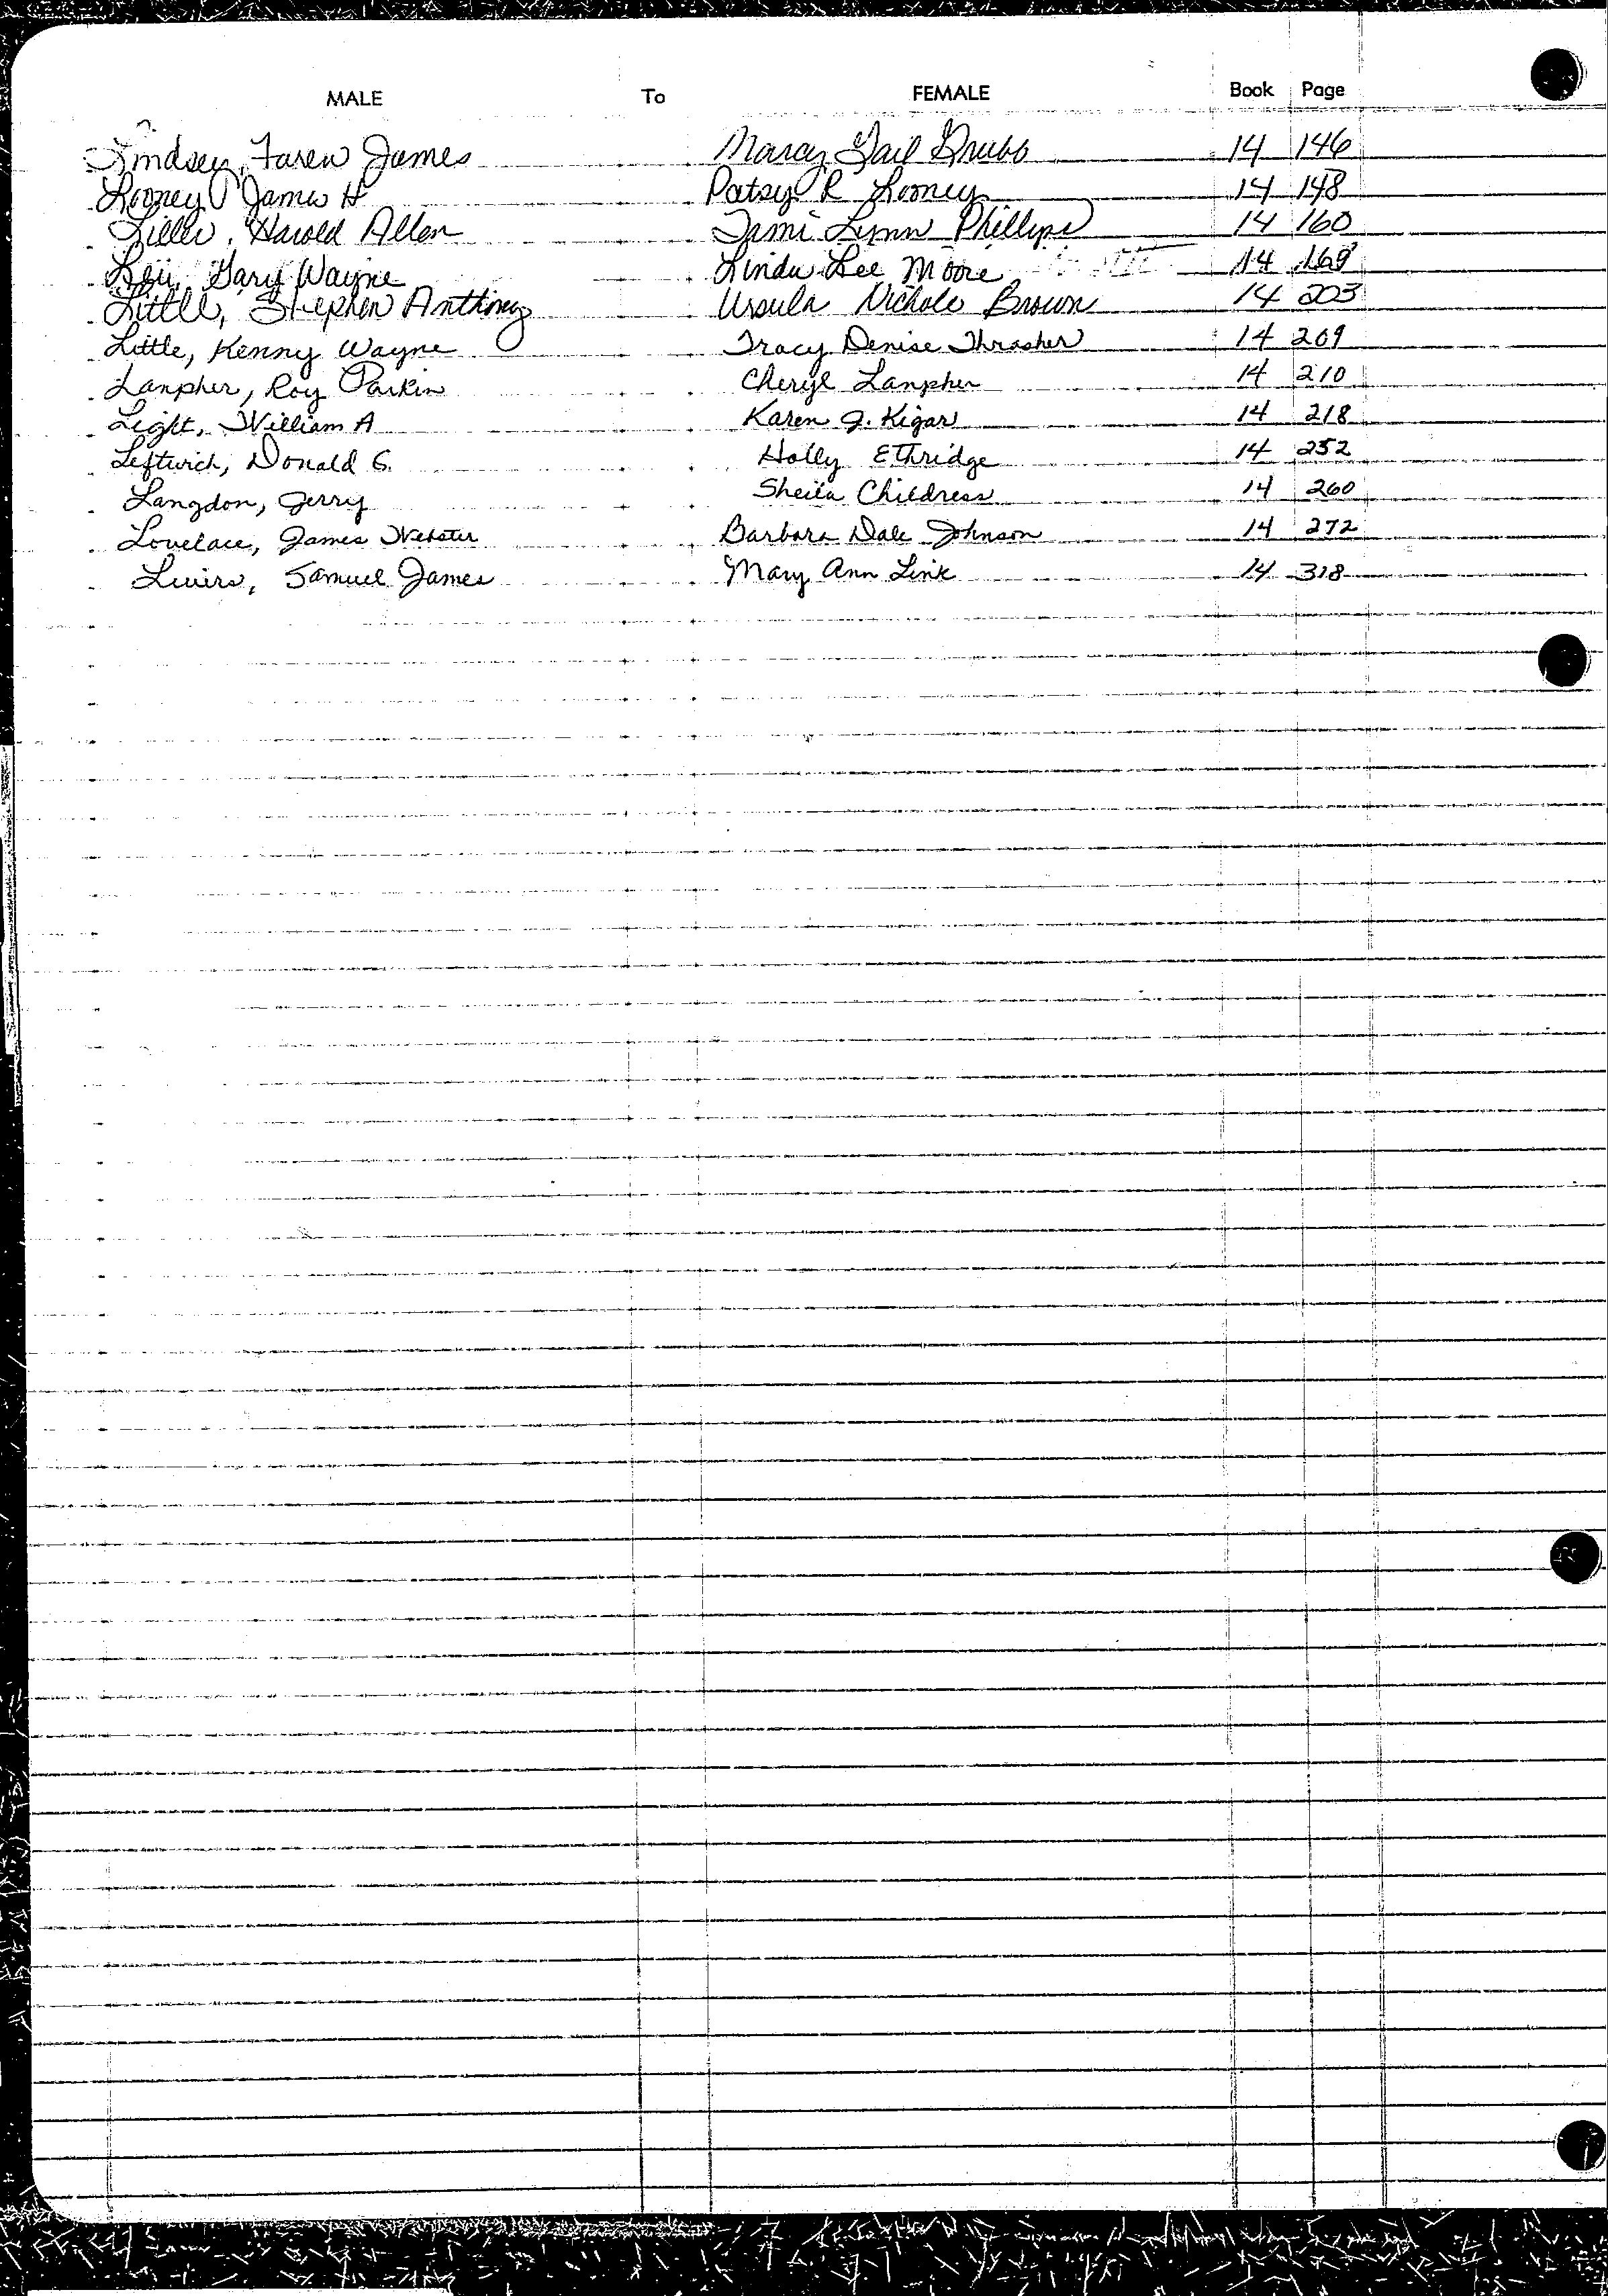 MALE To FEMALE Book Page
Lindsey, Faren James Marcy Gail Grubb 14 146
Looney, James H Patsy R Looney 14 148
Liller, Harold Allen Tami Lynn Phillips 14 160
Gary Wayne Linda Lee Moore 14 169
Little, Stephen Anthony Ursula Nichole Brown 14 203
Little, Kenny Wayne Tracy Denise Thrasher 14 209
Lanpher, Roy Parkin Cheryl Lanpher 14 210
Light, William A Karen J. Kigar 14 218
Leftwich, Donald G. Holly Ethridge 14 252
Langdon, Jerry Sheila Childress 14 260
Lovelace, James Webster Barbara Dale Johnson 14 272
Samuel James Mary Ann Link 14 318